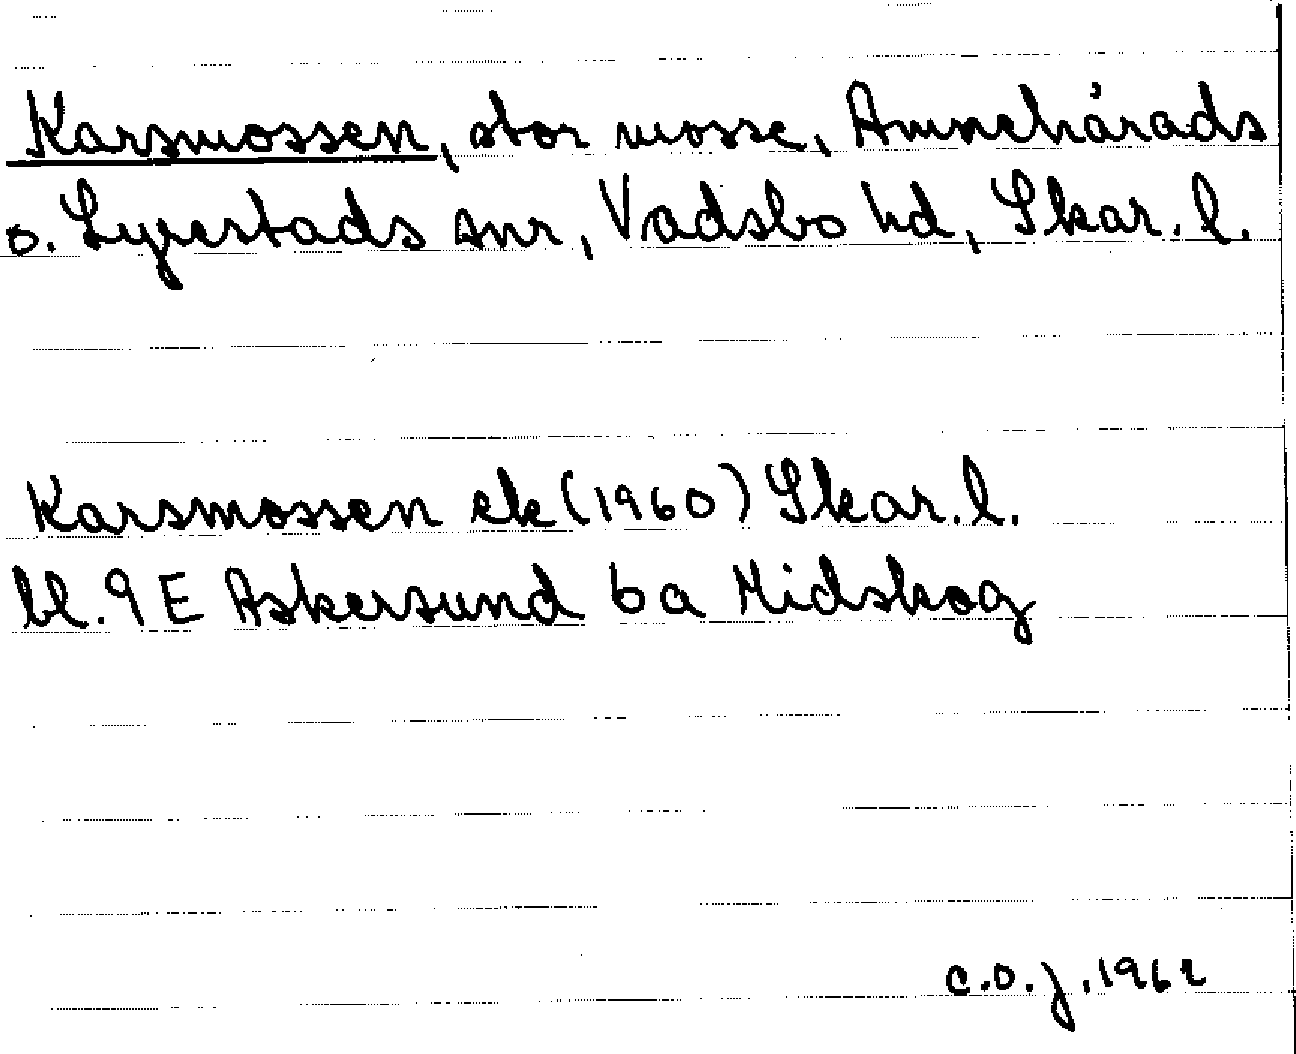 Karsmossen, stor mosse, Amnehärads
o. Lyrestads snr, Vadsbo hd, Skar. l.
Karsmossen ek (1960) Skar. l.
bl. 9 E Askersund 6a Midskog
C.O.J. 1962